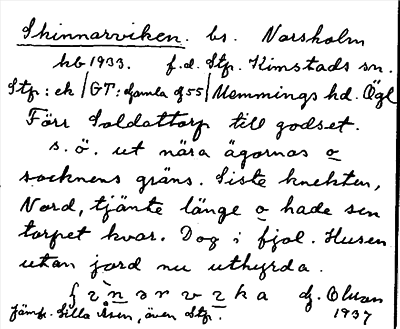 Skinnarviken. bs. Norsholm
hb 1933. f.d. Stp. Kimstads sn.
Stp: ek / GT: gamla gf 55 / Memmings hd. Ögl
Förr Soldattorp till godset.
s.ö. ut nära ägornas o
socknens gräns. Siste knekten,
Nord, tjänte länge o hade sen
torpet kvar. Dog i fjol. Husen
utan jord nu uthyrda.
af. Olson
jämf. Lilla Åsen, även Stp. 1937